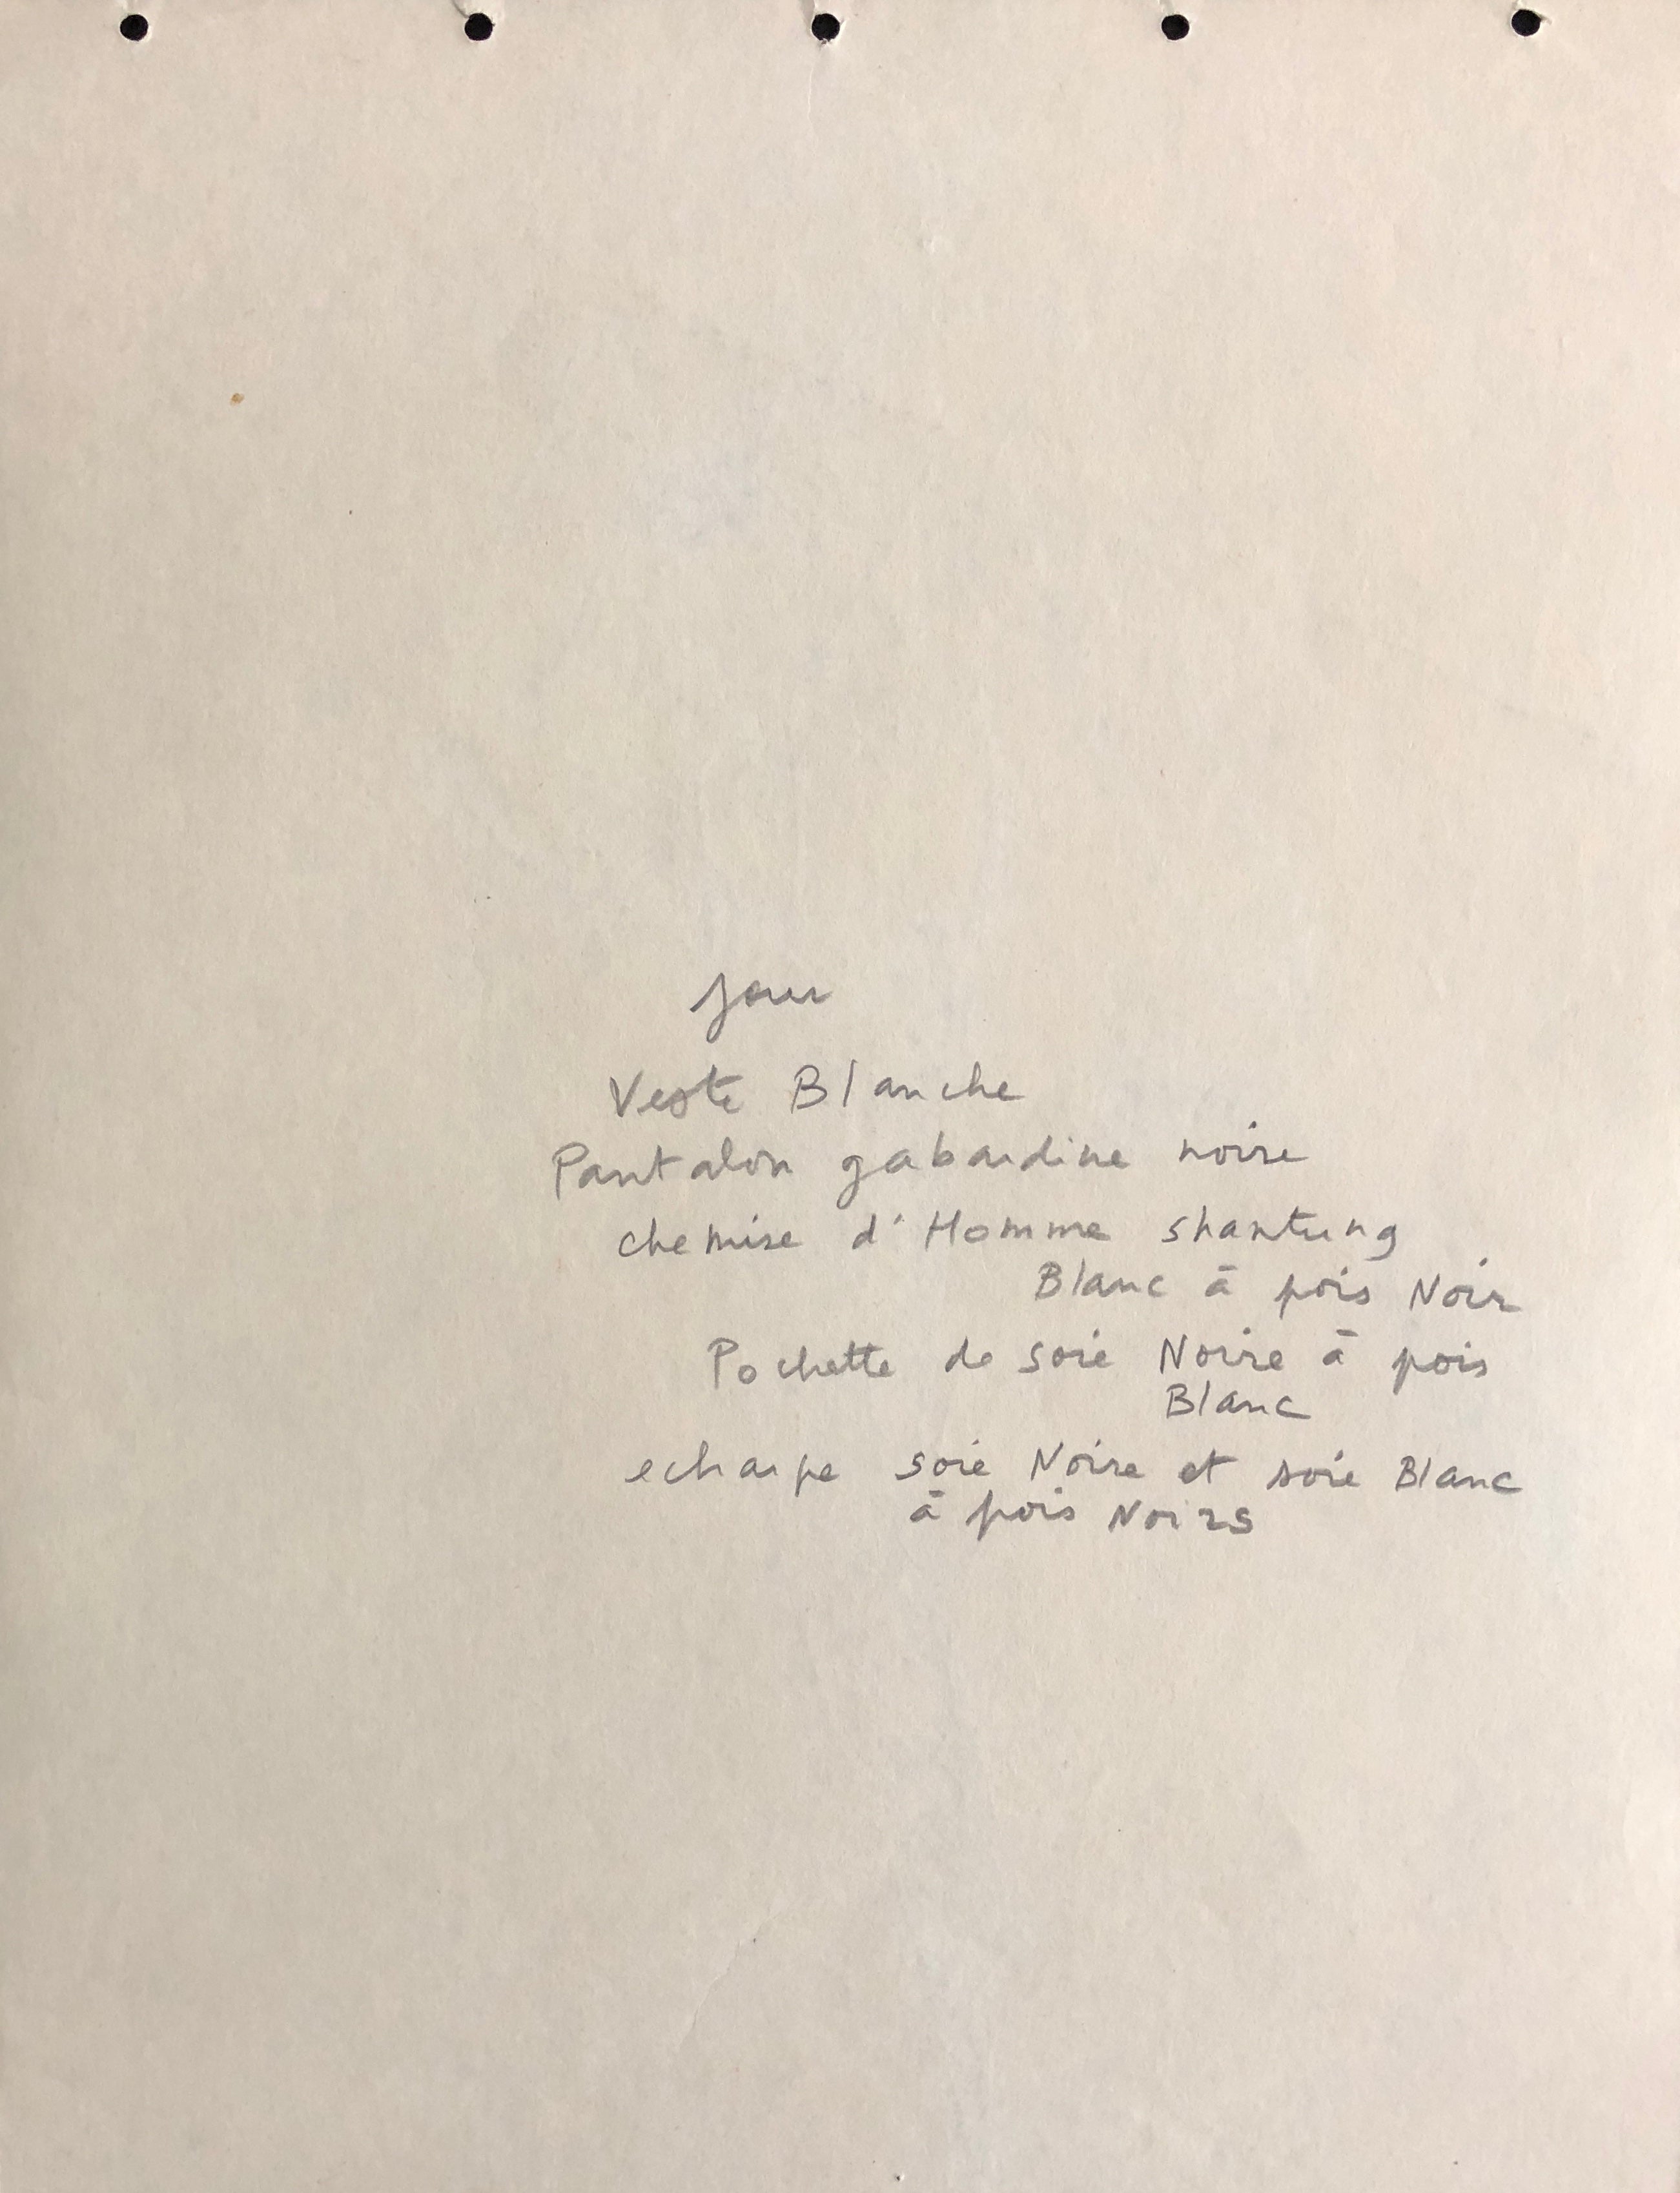 jour
Veste Blanche
Pantalon gabardine noire
chemise d'Homme shantung
Blanc à pois Noir
Pochette de soie Noire à pois
Blanc
echarpe soie Noire et soie Blanc
à pois Noirs